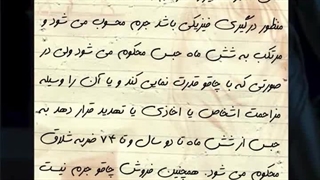 منظور درگیری فیزیکی باشد جرم محسوب می شود و
مرتکب به شش ماه حبس محکوم می شود ولی در
صورتی که با چاقو قدرت نمایی کند و یا آن را وسیله
مزاحمت اشخاص یا اخاذی یا تهدید قرار دهد به
حبس از شش ماه تا دو سال و تا ۷۴ ضربه شلاق
محکوم می شود. همچنین فروش چاقو جرم نیست